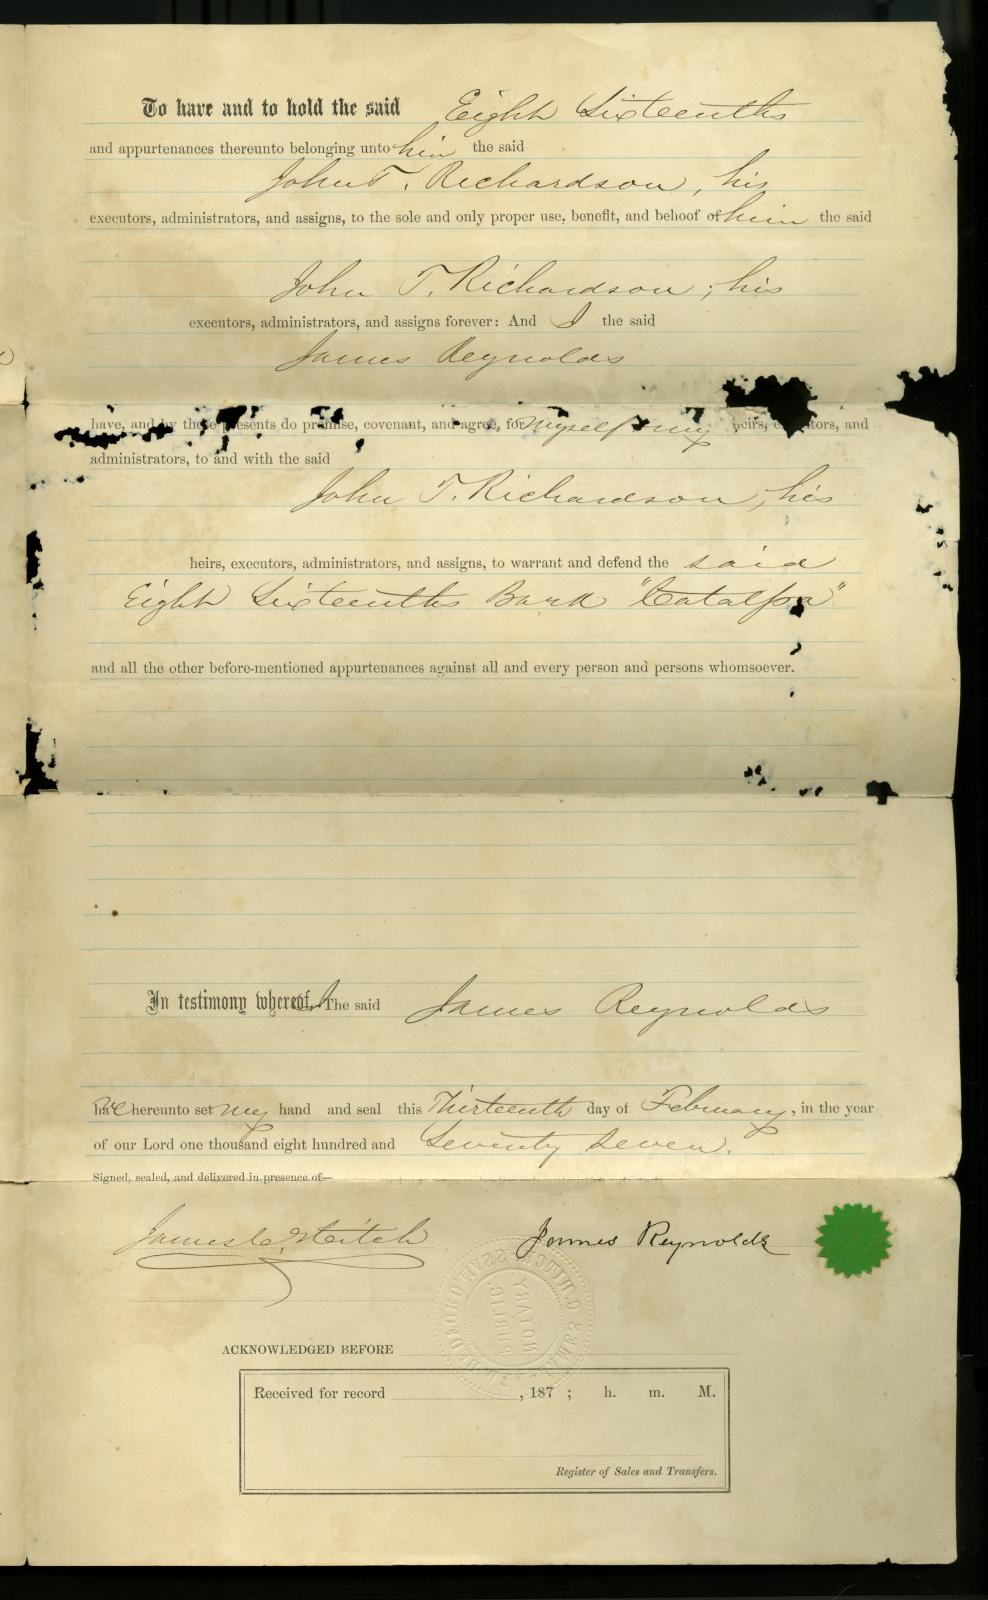 To have and to hold the said Eight Sixteenths
and appurtenances thereunto belonging unto him the said
John T. Richardson, his
executors, administrators, and assigns, to the sole and only proper use, benefit, and behoof of him the said
John T. Richardson, his
executors, administrators, and assigns forever: And I the said
James Reynolds
have, and by these presents do promise, covenant, and agree, for myself my heirs, executors, and
administrators, to and with the said
John T. Richardson, his
heirs, executors, administrators, and assigns, to warrant and defend the said
Eight Sixteenths Bark "Catalpa"
and all the other before-mentioned appurtenances against all and every person and persons whomsoever.
In testimony whereof, I The said James Reynolds
have hereunto set my hand and seal this Thirteenth day of February, in the year
of our Lord one thousand eight hundred and Seventy Seven.
Signed, sealed, and delivered in presence of—
James C. Hitch James Reynolds
JAMES C. HITCH
NOTARY
PUBLIC
NEW BEDFORD MASS
ACKNOWLEDGED BEFORE
Received for record , 187 ; h. m. M.
Register of Sales and Transfers.